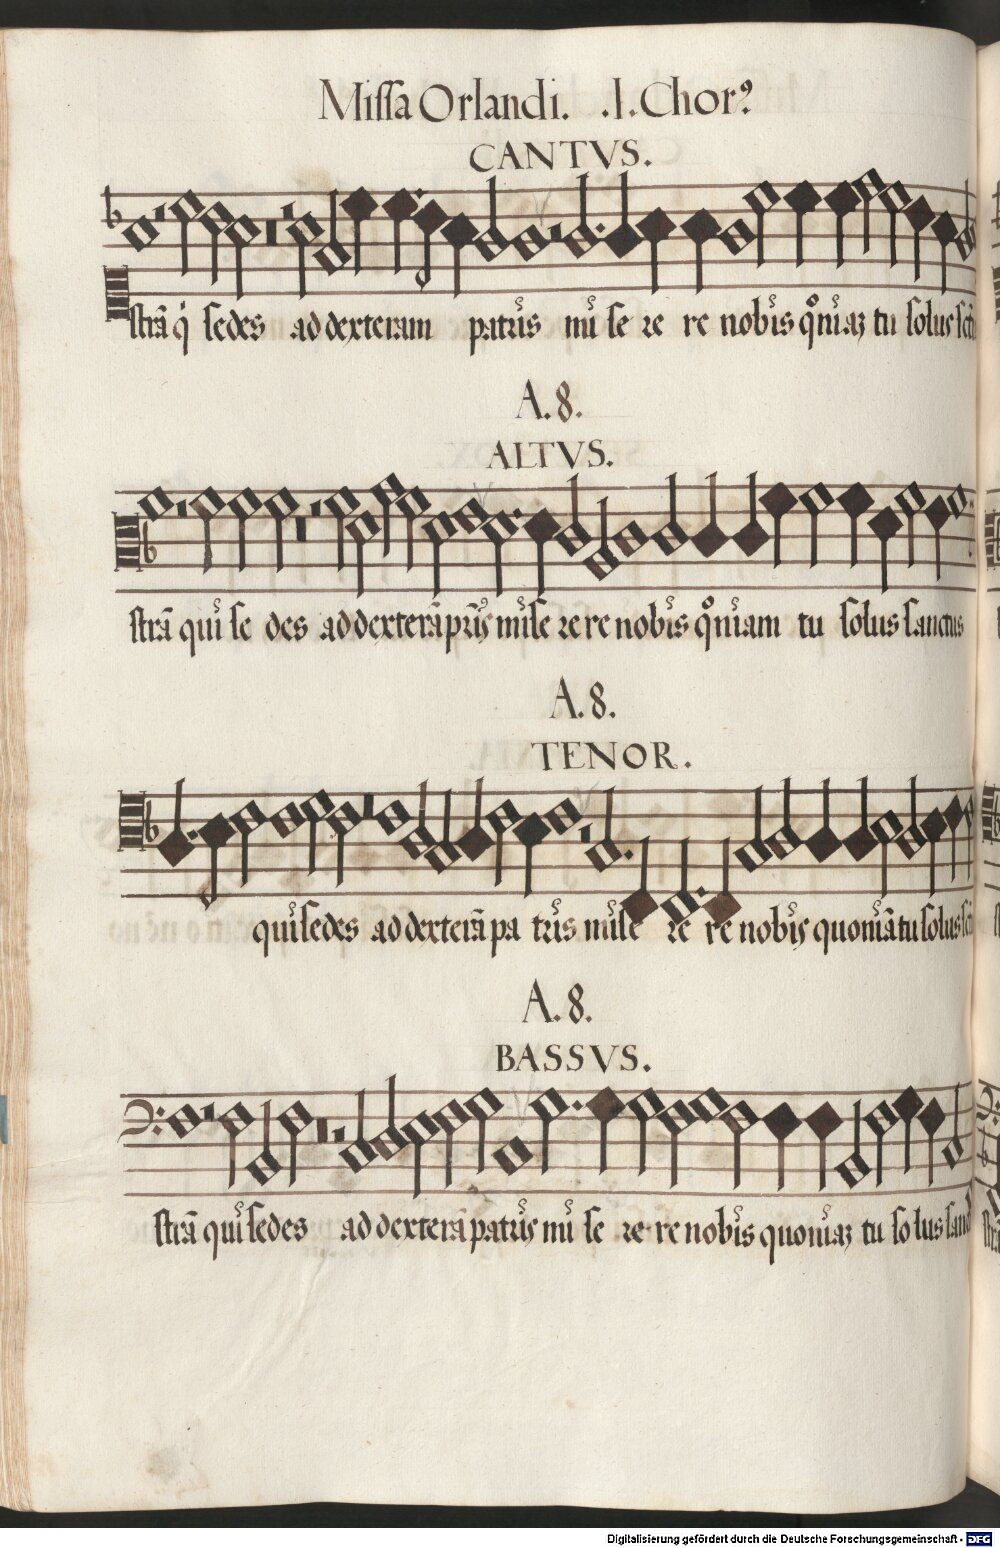 Missa Orlandi. .I. Chorꝰ
CANTVS.
strā q̇ sedes ad dexteram patris mi se re re nobis qͦniaꝫ tu solus
A. 8.
ALTVS.
strā qui se des ad dexterā pr̄is mise re re nobis qͦniam tu solus sanctus
A. 8.
TENOR.
qui sedes ad dexterā pa tris mise re re nobis quoniā tu solus
A. 8.
BASSVS.
strā qui sedes ad dexterā patris mi se re re nobis quoniaꝫ tu so lus
Digitalisierung gefördert durch die Deutsche Forschungsgemeinschaft - DFG